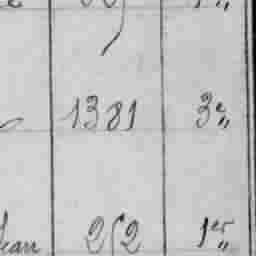 1381 3e "
Jean 252 1er "